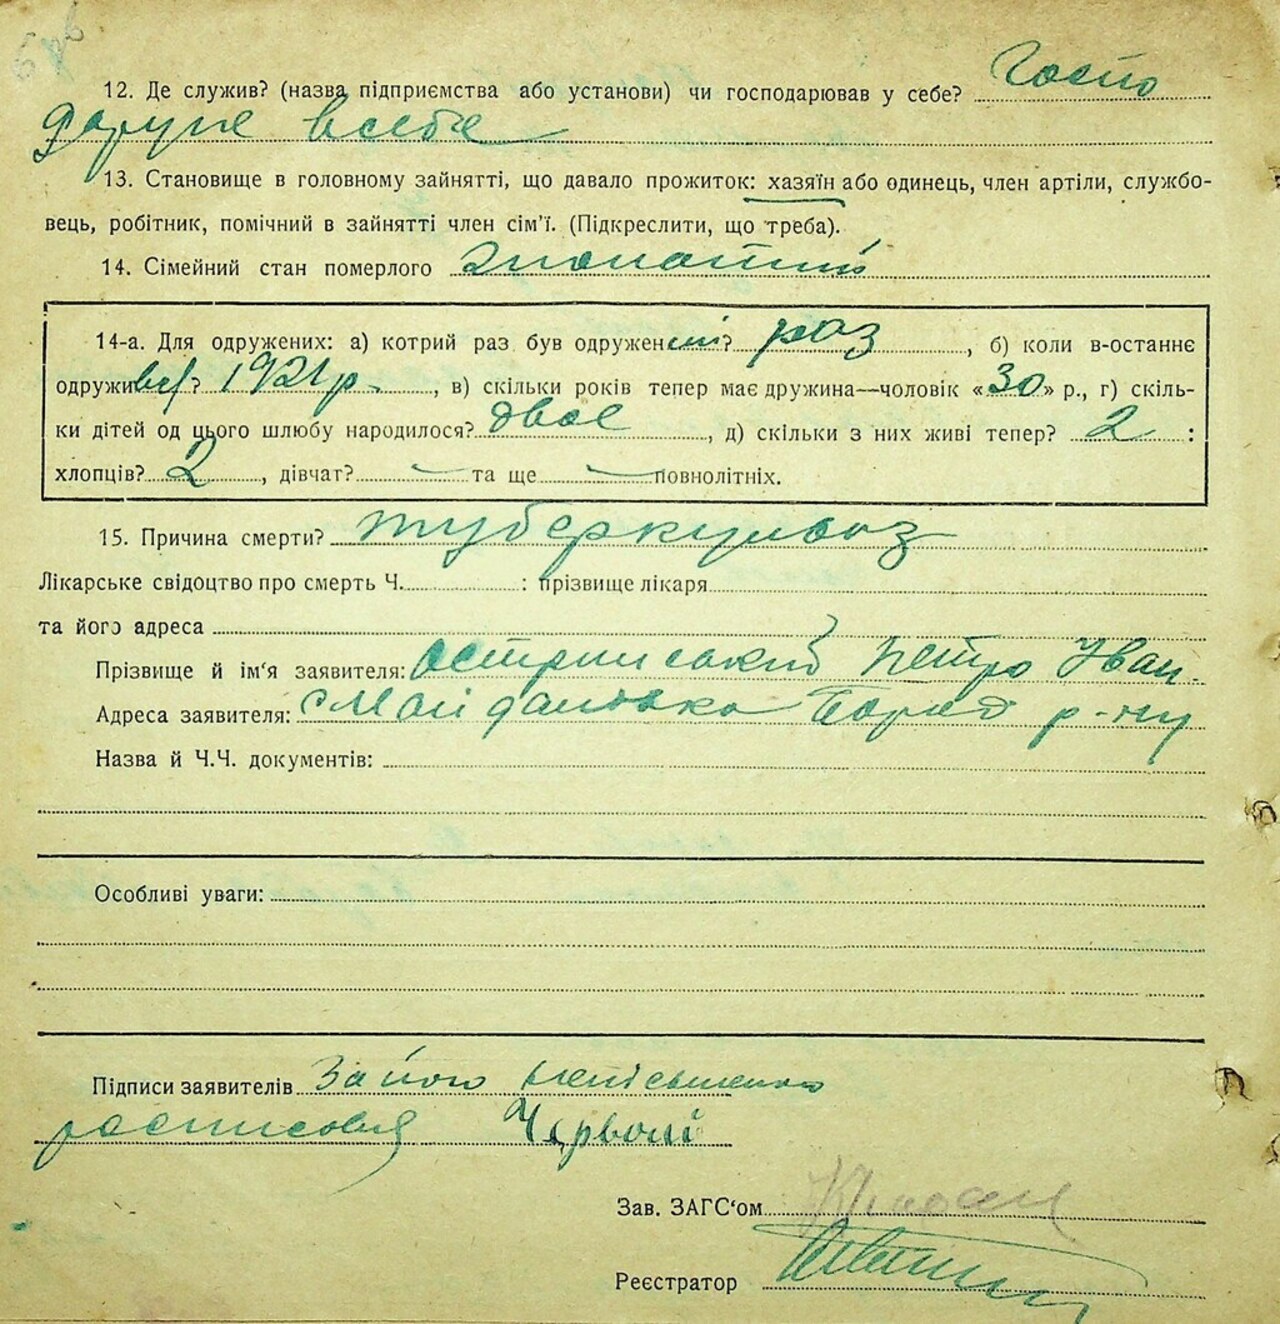 12. Де служив? (назва підприємства або установи) чи господарював у себе? Госпо
даруе в себе
13. Становище в головному зайнятті, що давало прожиток: хазяїн або одинець, член артіли, службо-
вець, робітник, помічний в зайнятті член сім'ї. (Підкреслити, що треба).
14. Сімейний стан померлого
14-а. Для одружених: а) котрий раз був одружен раз, б) коли в-останнє
одружи ? 1921 р., в) скільки років тепер має дружина—чоловік «30» р., г) скіль-
ки дітей од цього шлюбу народилося? двое, д) скільки з них живі тепер? 2 :
хлопців? 2, дівчат? — та ще — повнолітніх.
15. Причина смерти? туберкульоз
Лікарське свідоцтво про смерть Ч. : прізвище лікаря
та його адреса
Прізвище й ім‘я заявителя: Петро Іван.
Адреса заявителя: с Майданівка р-ну
Назва й Ч.Ч. документів:
Особливі уваги:
Підписи заявителів За його неписьменого
росписовся
Зав. ЗАГС‘ом
Реєстратор